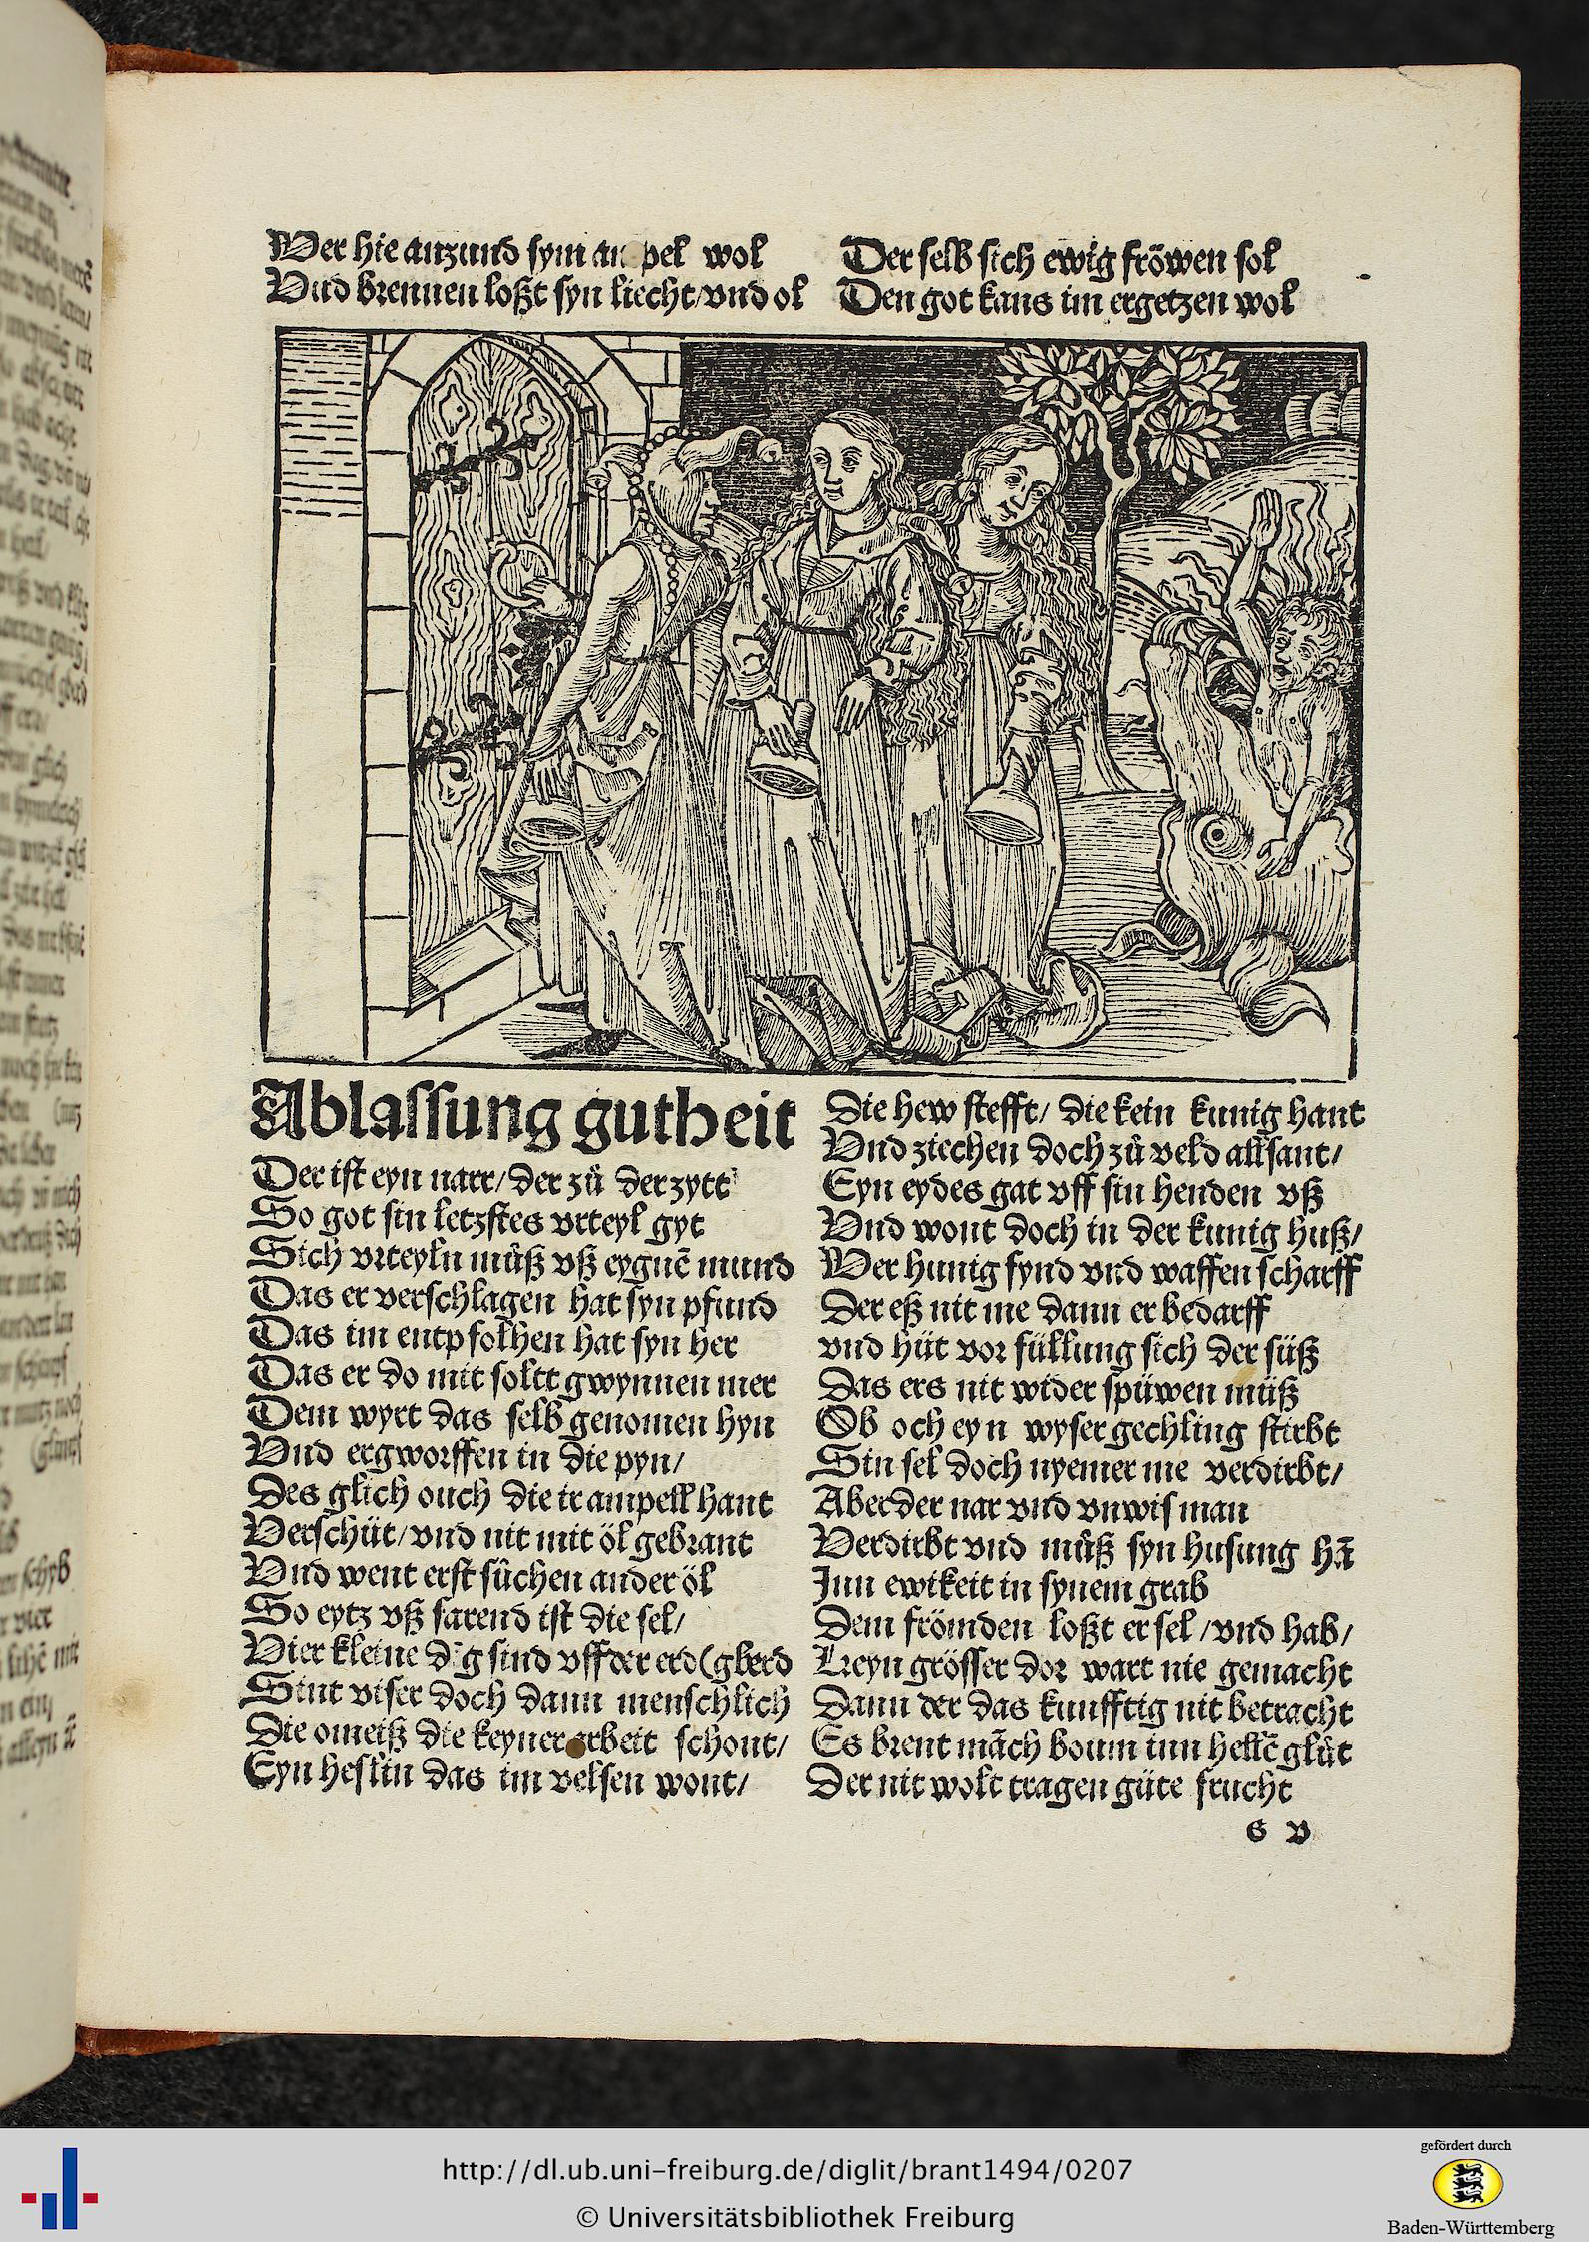 Wer hie anzund sym am pel wol
Vnd brennen loßt syn liecht/vnd ol
Der selb sich ewig fröwen sol
Den got kans im ergetzen wol
Ablassung gutheit
Der ist eyn narr/der zů der zytt
So got sin letzstes vrteyl gyt
Sich vrteyln můß vß eygnē mund
Das er verschlagen hat syn pfund
Das im entpfolhen hat syn her
Das er do mit soltt gwynnen mer
Dem wyrt das selb genomen hyn
Vnd ergworffen in die pyn/
Des glich ouch die ir ampell hant
Verschüt/vnd nit mit öl gebrant
Vnd went erst sůchen ander öl
So eytz vß farend ist die sel/
Vier kleine dīg sind vff der erd (gberd
Sint viser doch dann menschlich
Die omeiß die keyner arbeit schont/
Eyn heslin das im velsen wont/
Die hew stefft/die kein kunig hant
Vnd ziechen doch zů veld allsant/
Eyn eydes gat vff sin henden vß
Vnd wont doch in der kunig huß/
Wer hunig fynd vnd waffen scharff
Der eß nit me dann er bedarff
vnd hüt vor füllung sich der süß
Das ers nit wider spüwen müß
Ob och eyn wyser gechling stirbt
Sin sel doch nyemer me verdirbt/
Aber der nar vnd vnwis man
Verdirbt vnd můß syn husung hā
Inn ewikeit in synem grab
Dem frömden loßt er sel/vnd hab/
Keyn grösser dor wart nie gemacht
Dann der das kunfftig nit betracht
Es brent māch boum inn hellē glůt
Der nit wolt tragen güte frucht
s v
http://dl.ub.uni-freiburg.de/diglit/brant1494/0207
© Universitätsbibliothek Freiburg
gefördert durch
Baden-Württemberg